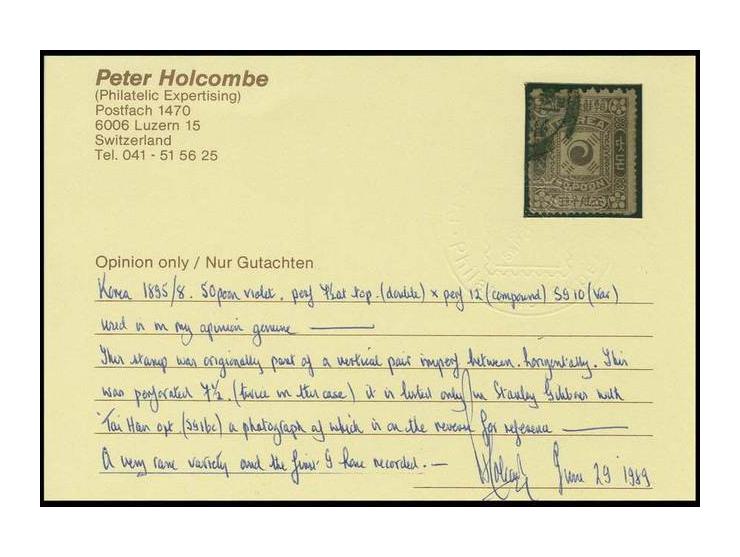 Peter Holcombe
(Philatelic Expertising)
Postfach 1470
6006 Luzern 15
Switzerland
Tel. 041 - 51 56 25
KOREA
50 POON
Opinion only / Nur Gutachten
Korea 1895/8. 50poon violet. perf 7½ at top. (double) x perf 12 (compound) SG 10 (var)
used is in my opinion genuine
This stamp was originally part of a vertical pair imperf between horizontally. This
was perforated 7½. (twice in this case) it is listed only in Stanley Gibbons with
Tai Han opt. (SG16c) a photograph of which is on the reverse for reference
A very rare variety and the first I have recorded. — June 29 1989